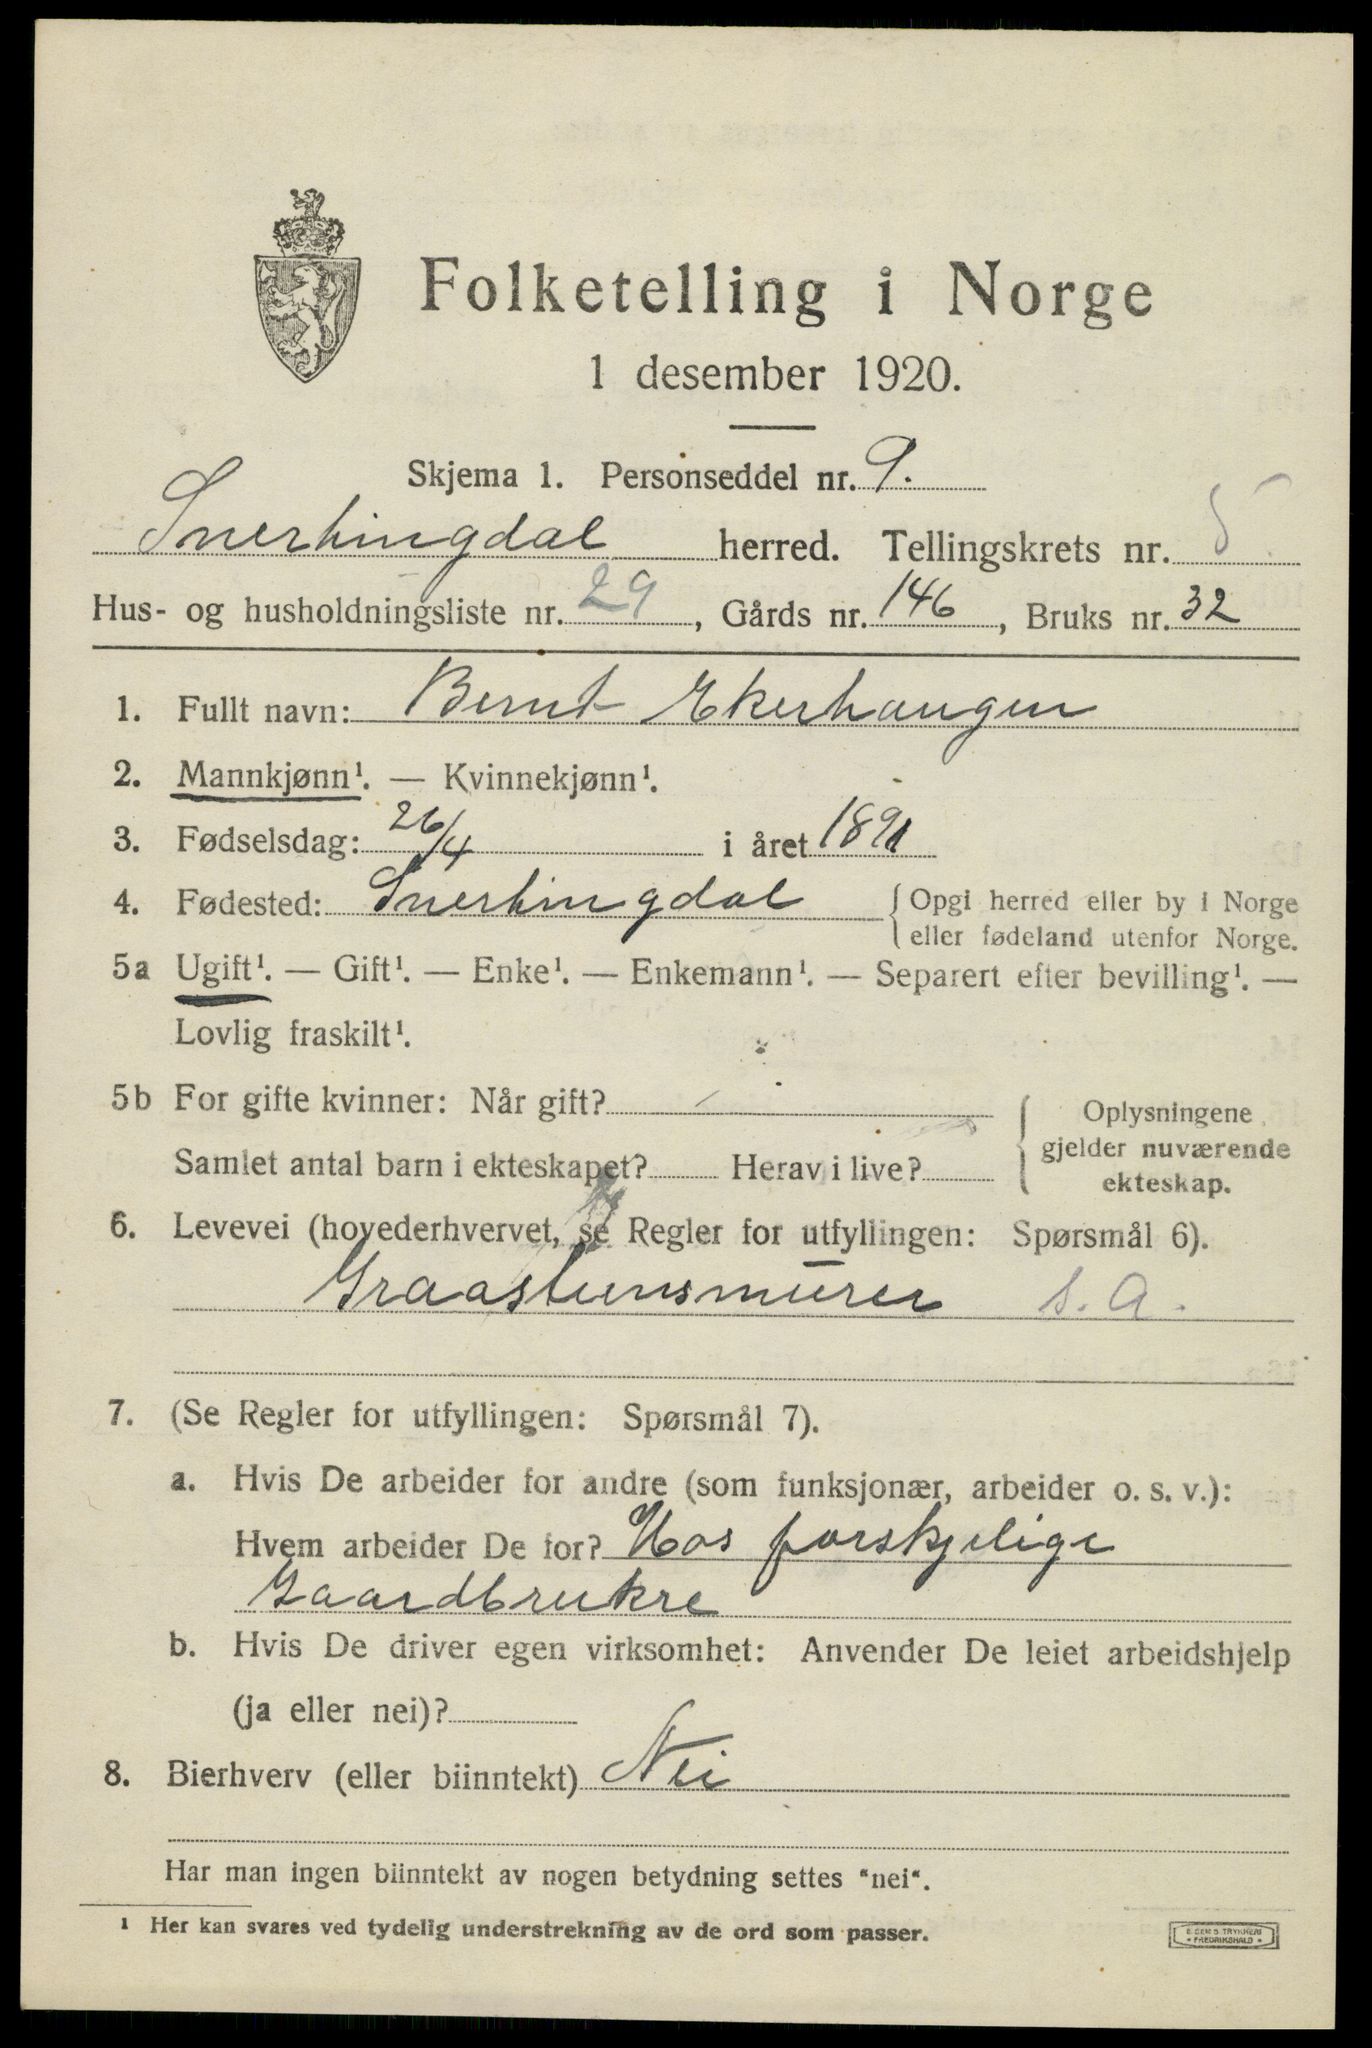 Folketelling i Norge
1 desember 1920.
Skjema 1. Personseddel nr. 9.
Snertingdal herred. Tellingskrets nr. 5
Hus- og husholdningsliste nr. 29, Gårds nr. 146, Bruks nr. 32
1. Fullt navn: Bernt Ekerhaugen
2. Mannkjønn¹. — Kvinnekjønn¹.
3. Fødselsdag: 26/4 i året 1891
4. Fødested: Snertingdal { Opgi herred eller by i Norge
eller fødeland utenfor Norge.
5a Ugift¹. — Gift¹. — Enke¹. — Enkemann¹. — Separert efter bevilling¹. —
Lovlig fraskilt¹.
5b For gifte kvinner: Når gift? { Oplysningene
gjelder nuværende
ekteskap.
Samlet antal barn i ekteskapet? Herav i live?
6. Levevei (hovederhvervet, se Regler for utfyllingen: Spørsmål 6).
Graastensmurer s. a.
7. (Se Regler for utfyllingen: Spørsmål 7).
a. Hvis De arbeider for andre (som funksjonær, arbeider o. s. v.):
Hvem arbeider De for? Hos forskjelige
Gaardbrukre
b. Hvis De driver egen virksomhet: Anvender De leiet arbeidshjelp
(ja eller nei)?
8. Bierhverv (eller biinntekt) Nei
Har man ingen biinntekt av nogen betydning settes "nei".
¹ Her kan svares ved tydelig understrekning av de ord som passer.
TRYKKERI
FREDRIKSHALD